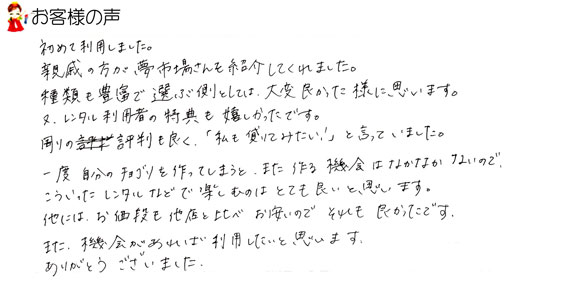 お客様の声
初めて利用しました。
親戚の方が夢市場さんを紹介してくれました。
種類も豊富で選ぶ側としては、大変良かった様に思います。
又、レンタル利用者の特典も嬉しかったです。
周りの評判も良く、「私も借りてみたい!」と言っていました。
一度自分のチョゴリを作ってしまうと、また作る機会はなかなかないので、
こういったレンタルなどで楽しむのはとても良いと思います。
他には、お値段も他店と比べお安いのでそれも良かったです。
また、機会があれば利用したいと思います。
ありがとうございました。